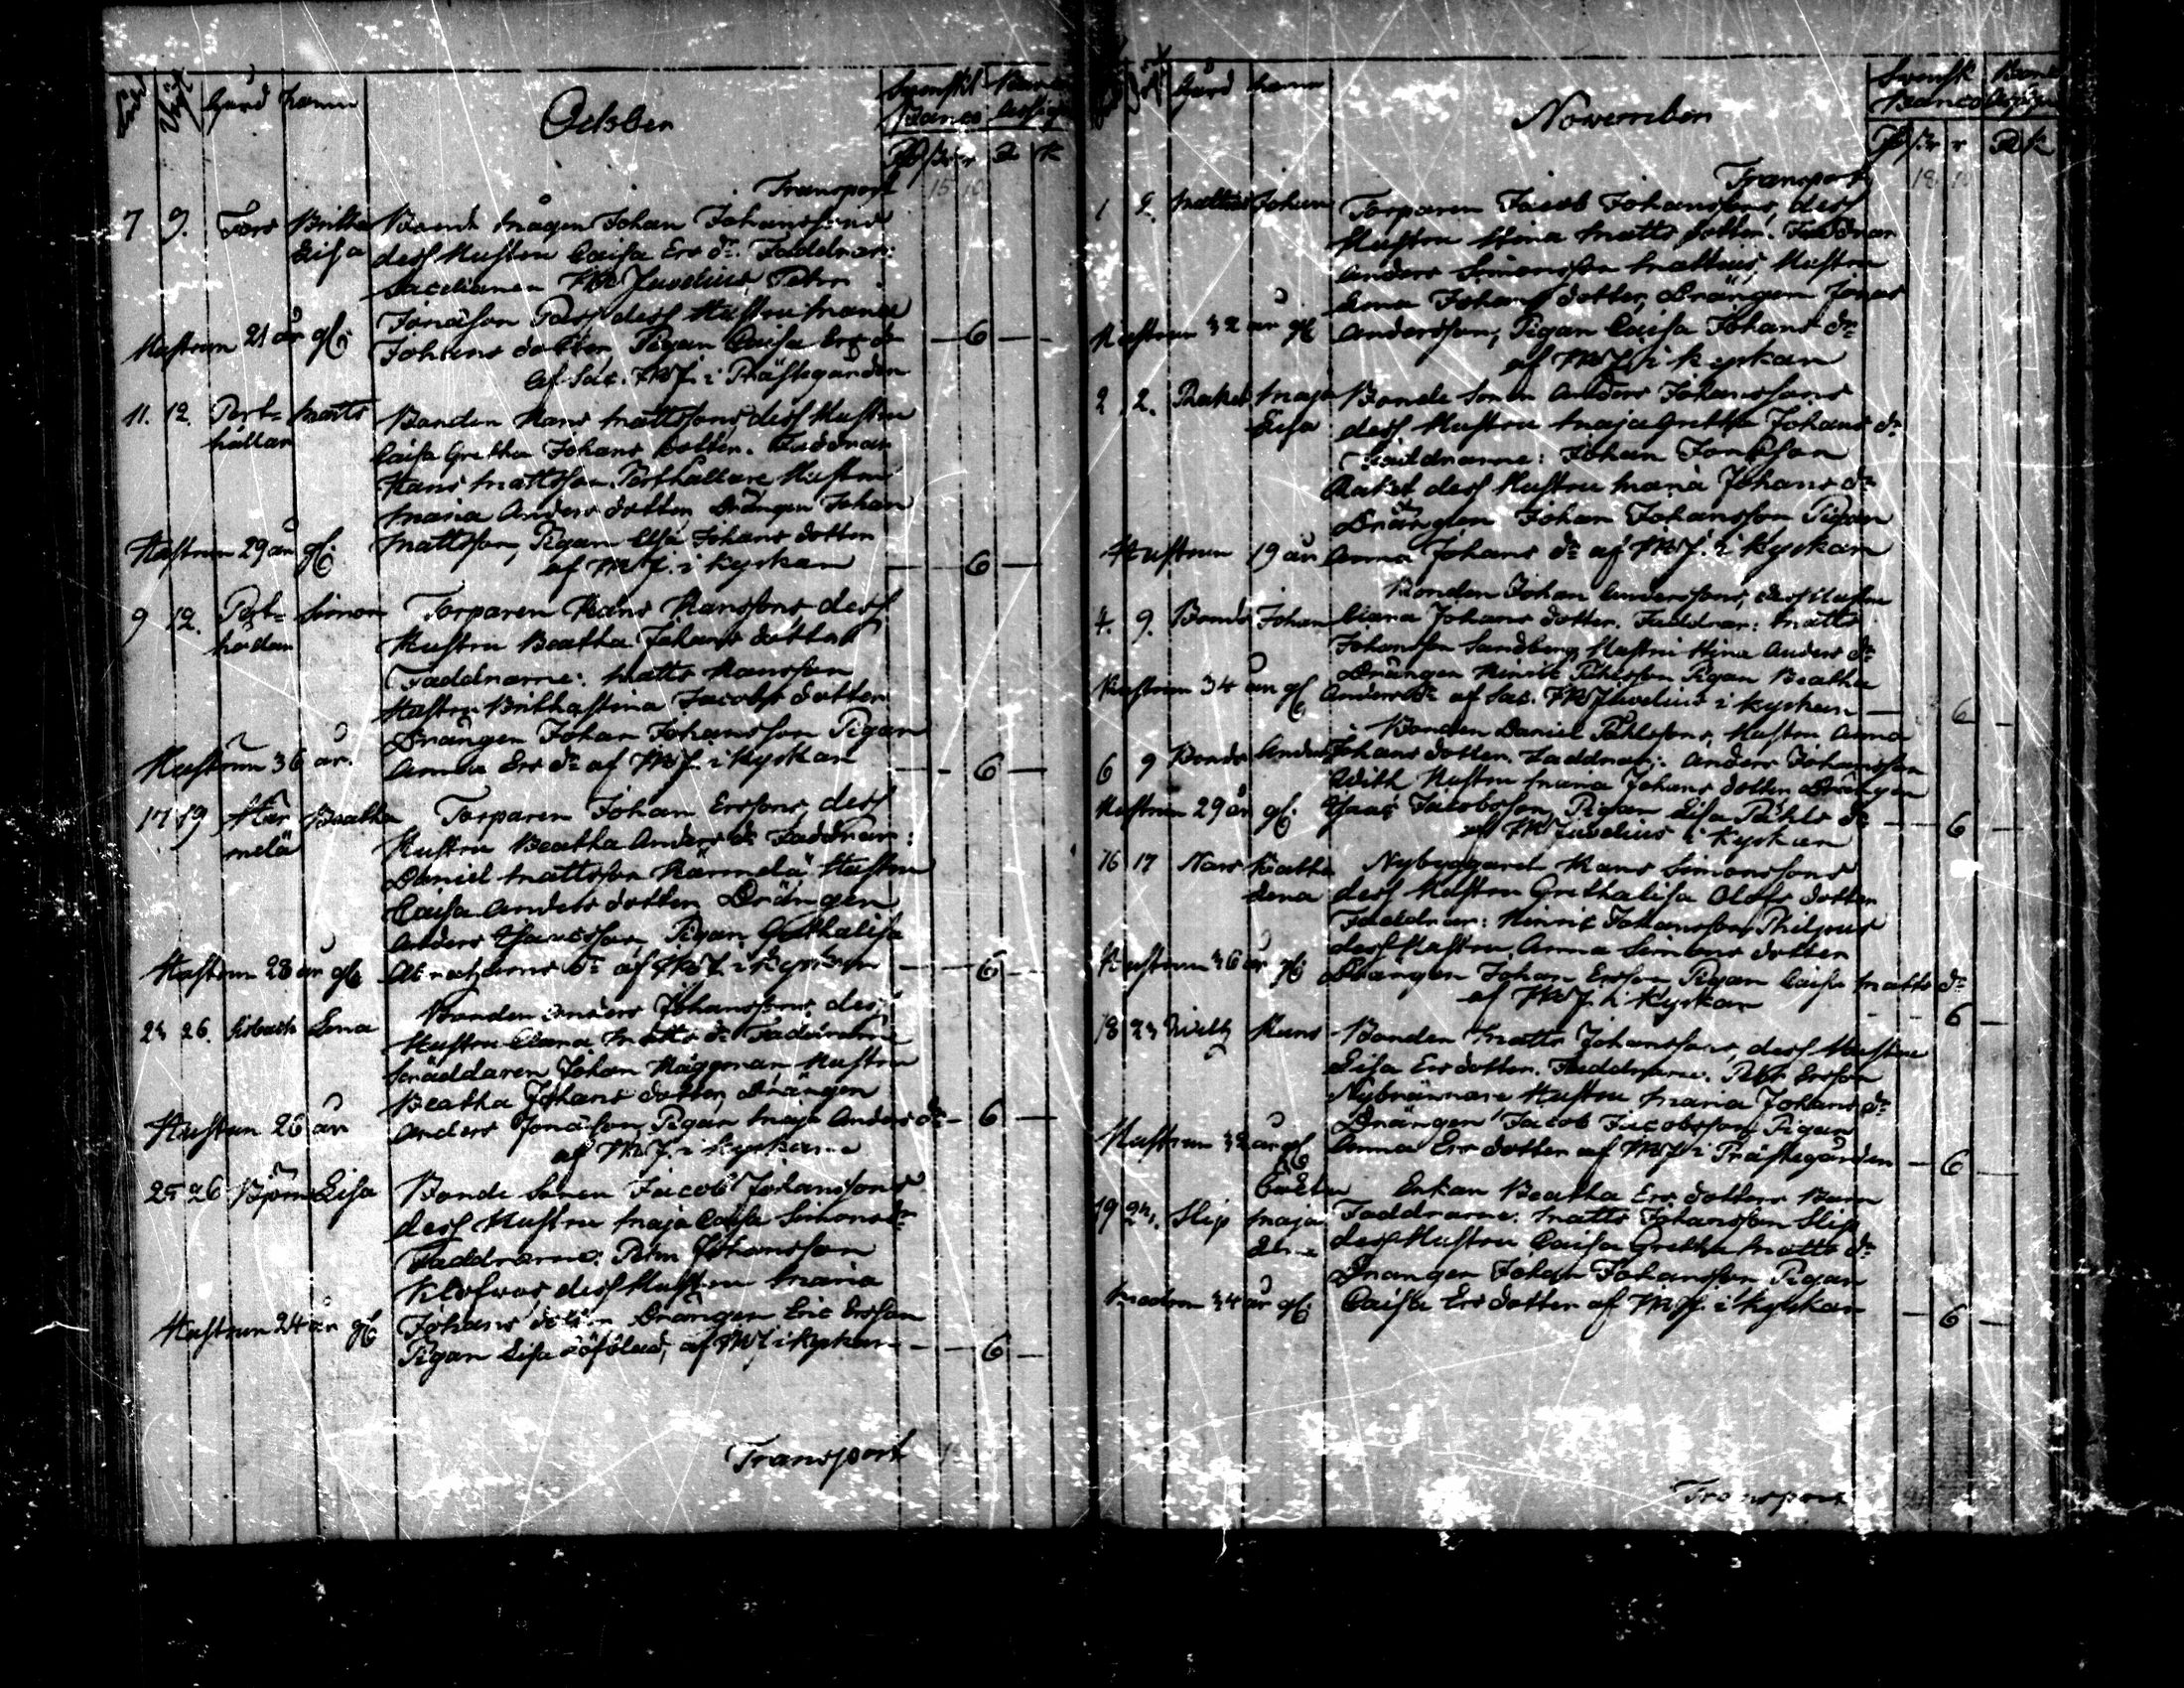 Gård hemn
October
Svenskt Banco
Transport 15 10
7 9. Fors Britha Lisa
Bonde mågen Johan Johanssons
dess Hustru Caisa Ers dr. Faddrar:
Sacellanen IWJuvelius Petter
Jonasson Fors dess Hustru Maria
Johans dotter, Pigan Caisa Ers dr
af Sac. IWJ. i Prästegården
Hustrun 21 år gl.
— 6 —
11. 12. Port= hällar Matts
Bonden Hans Mattssons, dess Hustru
Caisa Gretha Johans dotter. Faddrar
Hans Mattsson Porthällare Hustru
Maria Anders dotter Drängen Johan
Mattsson, Pigan Elsa Johans dotter
af IWJ. i kyrkan
Hustrun 29 år gl.
— 6 —
9 12. Simon
Torparen Hans Hanssons dess
Hustru Beatha Johans dotter
Faddrarne: Matts Hansson
Hustru Brithastina Jacobs dotter
Drängen Johan Johansson Pigan
Anna Ers dr af IWJ. i Kyrkan
Hustrun 36 år.
— 6 —
17 19 Här melä Beatha
Torparen Johan Erssons, dess
Hustru Beatha Anders dr Faddrar:
Daniel Mattsson Härmelä Hustru
Caisa Anders dotter Drängen
Anders Pigan Grethalisa
dr af IWJ. i Kyrkan
Hustrun 28 år gl.
— 6 —
26. Lena
Bonden Anders Johanssons, dess
Hustru Clara Matts dr Faddrarne
Skräddaren Johan Häggman Hustru
Beatha Johans dotter, Drängen
Anders Jonasson, Pigan Maja Anders dr
af IWJ. i Kyrkan
Hustrun 26 år
— 6 —
25 26 Björn Lisa
Bonde Sonen Jacob Johanssons
dess Hustru Maja Caisa Simons dr
Faddrarne: Petter Johansson
dess Hustru Maria
Johans dotter Drängen Eric Ersson
Pigan Lisa af IWJ. i Kyrkan
Hustrun 24 år gl.
— 6 —
Transport
Gård hemn
November
Svensk Banco
Transport 18
1 2. Mattus Johan
Torparen Jacob Johanssons, dess
Hustru Stina Matts dotter. Faddrar
Anders Simonsson Mattus, Hustru
Lena Johans dotter, Drängen Jonas
Andersson, Pigan Caisa Johans dr
af IWJ. i kyrkan
Hustrun 32 år gl.
2 2. Raket Maja Lisa
Bonde Sonen Anders Johanssons
dess Hustru Maja Gretha Johans dr
Faddrarne: Johan
Raket dess Hustru Maria Johans dr
Drängen Johan Johansson Pigan
Anna Johans dr af IWJ. i Kyrkan
Hustrun 19 år
4. 9. Bonds Johan
Bonden Johan Anderssons, dess Hustru
Clara Johans dotter. Faddrar: Matts
Johansson Sandberg Hustru Stina Anders dr
Drängen Hinric Påhlsson Pigan Beatha
Anders dr af Sac. IWJuvelius i Kyrkan
Hustrun 34 år gl.
— 6 —
6 9 Bonds Anders
Bonden Daniel Påhlssons, Hustru Anna
Johans dotter. Faddrar: Anders Johansson
Hustru Maria Johans dotter Drängen
Isaac Jacobsson, Pigan Lisa Påhls dr
af IWJuvelius i Kyrkan
Hustrun 29 år gl.
— 6 —
16 17 Nars Beatha Lena
Nybyggaren Hans Simonssons
dess Hustru Grethalisa Olofs dotter
Faddrar: Henric Johansson Philpus
dess Hustru, Anna Simons dotter
Drängen Johan Ersson Pigan Caisa Matts dr
af IWJ. i Kyrkan
Hustrun 36 år gl.
— 6 —
18 23 Hans
Bonden Matts Johanssons, dess Hustru
Lisa Ersdotter. Faddrarne. Petter Ersson
Nybrännare Hustru Maria Johans dr
Drängen Jacob Jacobsson, Pigan
Anna Ers dotter af IWJ. i Prästegården
Hustrun 32 år gl.
— 6 —
19 24. Slip Maja Lena
Enkan Beatha Ers dotters Barn
Faddrarne. Matts Johansson Slip
dess Hustru Caisa Gretha Matts dr
Drängen Johan Johansson Pigan
Caisa Ers dotter af IWJ. i Kyrkan
Modren 34 år gl.
— 6 —
Transport